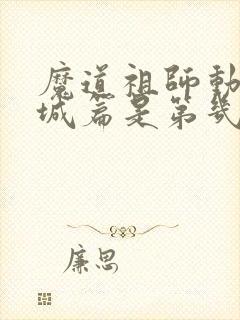 魔道祖師動
城篇是第幾
廉思